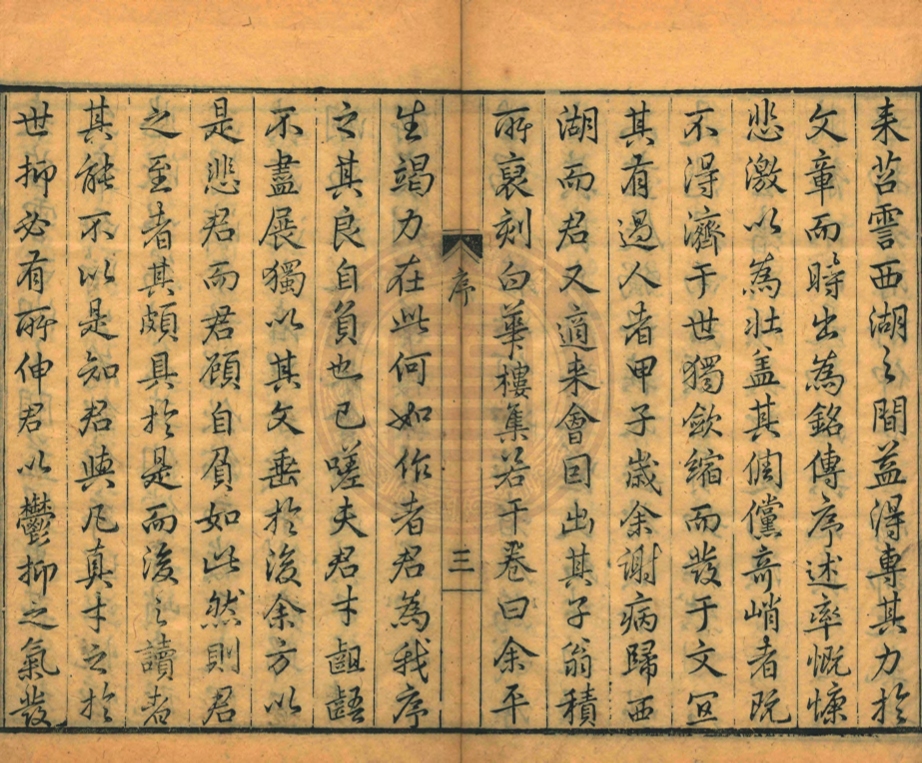 来苕霅西湖之間益得專其力於
文章而時出為銘傳序述率慨慷
悲激以為壯盖其倜儻奇峭者既
不得濟于世獨歛縮而發于文宜
其有過人者甲子歲余謝病歸西
湖而君又適来會因出其子翁積
所裒刻白華樓集若干卷曰余平
序
三
生竭力在此何如作者君為我序
之其良自負也已嗟夫君才齟齬
不盡展獨以其文垂於後余方以
是悲君而君顧自負如此然則君
之至者其頗具於是而後之讀者
其能不以是知君與凡真才之於
世抑必有所伸君以鬱抑之氣發